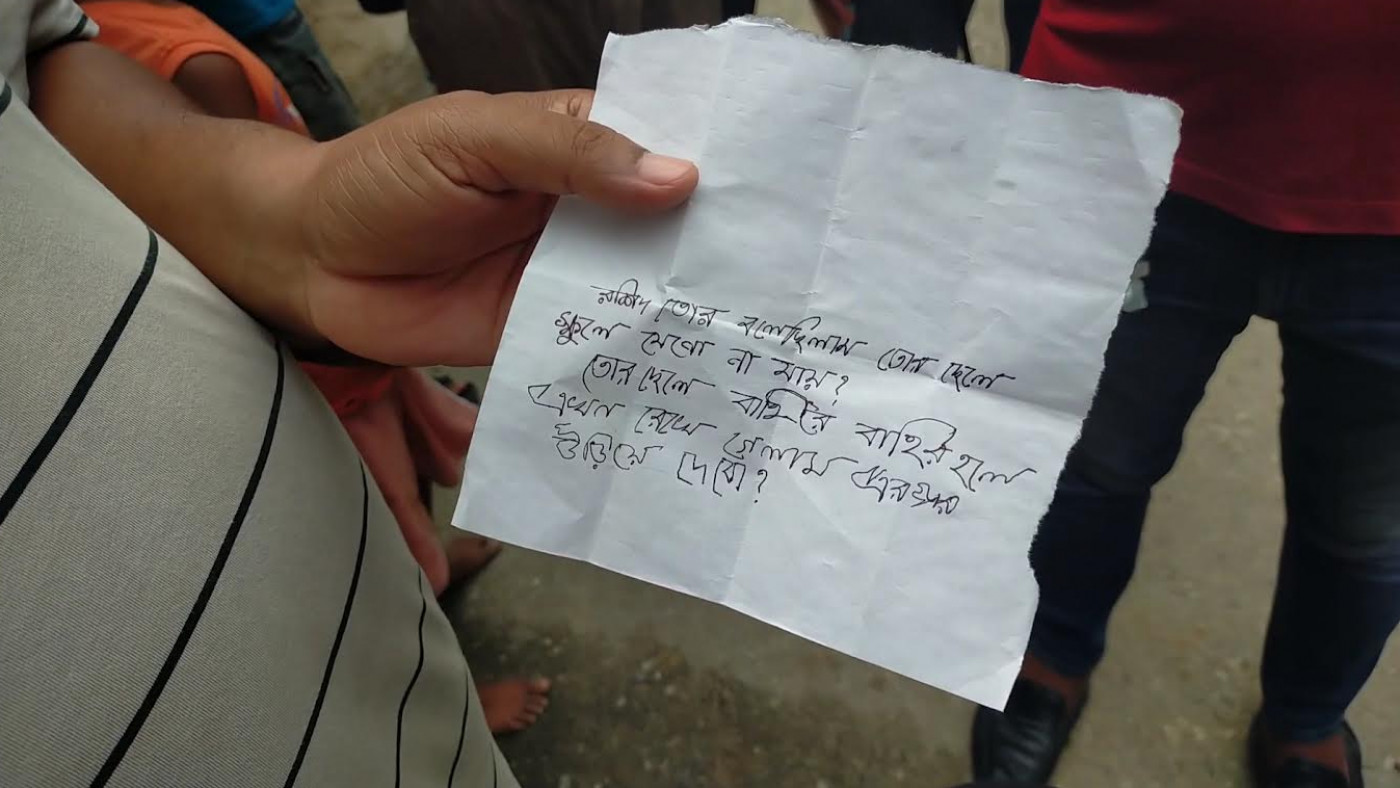 রশিদ তোর বলেছিলাম তোর ছেলে
স্কুলে যেনো না যায়?
তোর ছেলে বাহিরে বাহির হলে
এখন রেখে গেলাম এরপর
উঁড়িয়ে দেবো?